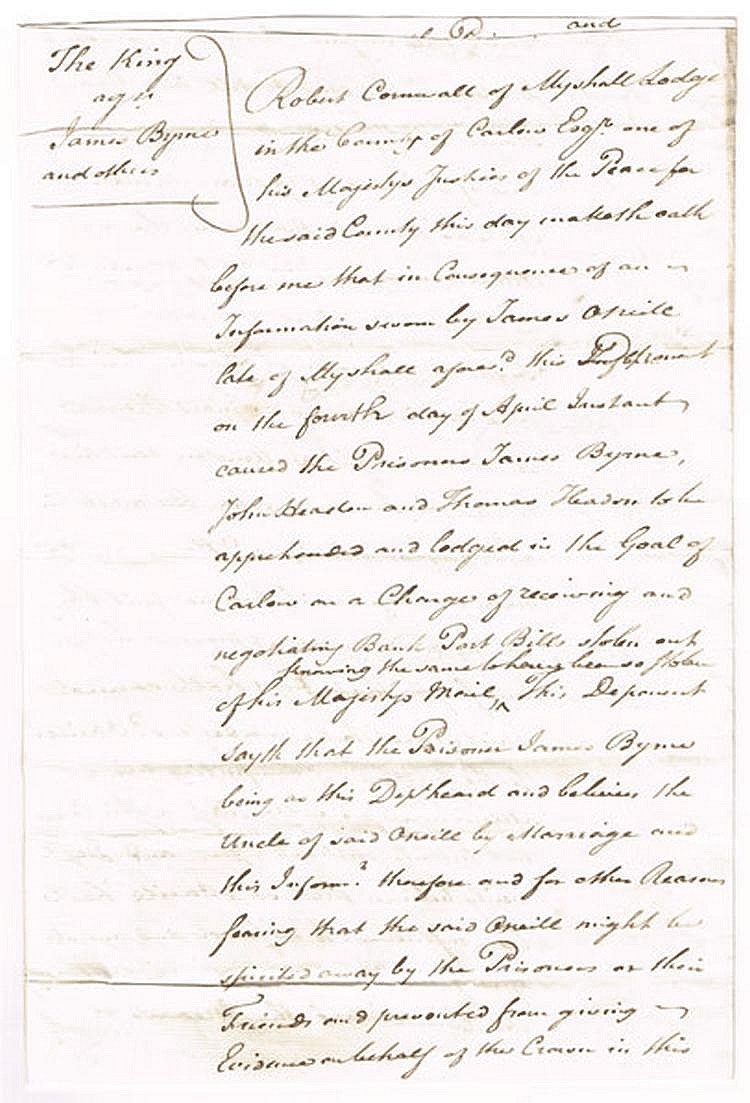 and
The King
agst
James Byrne
and others
Robert Cornwall of Myshall Lodge
in the County of Carlow Esqr. one of
his Majestys Justices of the Peace for
the said County this day maketh oath
before me that in Consequence of an
Information sworn by James ONeill
late of Myshall afores.d this Depont
on the fourth day of April Instant
caused the Prisoners James Byrne,
John Headon and Thomas Headon to be
apprehended and lodged in the Goal of
Carlow on a Charge of receiving and
negotiating Bank Post Bills stolen out
knowing the same to have been so stolen
of his Majestys Mail, This Deponent
sayth that the Prisoner James Byrne
being as this Dept heard and believes the
Uncle of said ONeill by Marriage and
this Inform.t therefore and for other Reasons
fearing that the said ONeill might be
spirited away by the Prisoners or their
Friends and prevented from giving
Evidence on behalf of the Crown in this